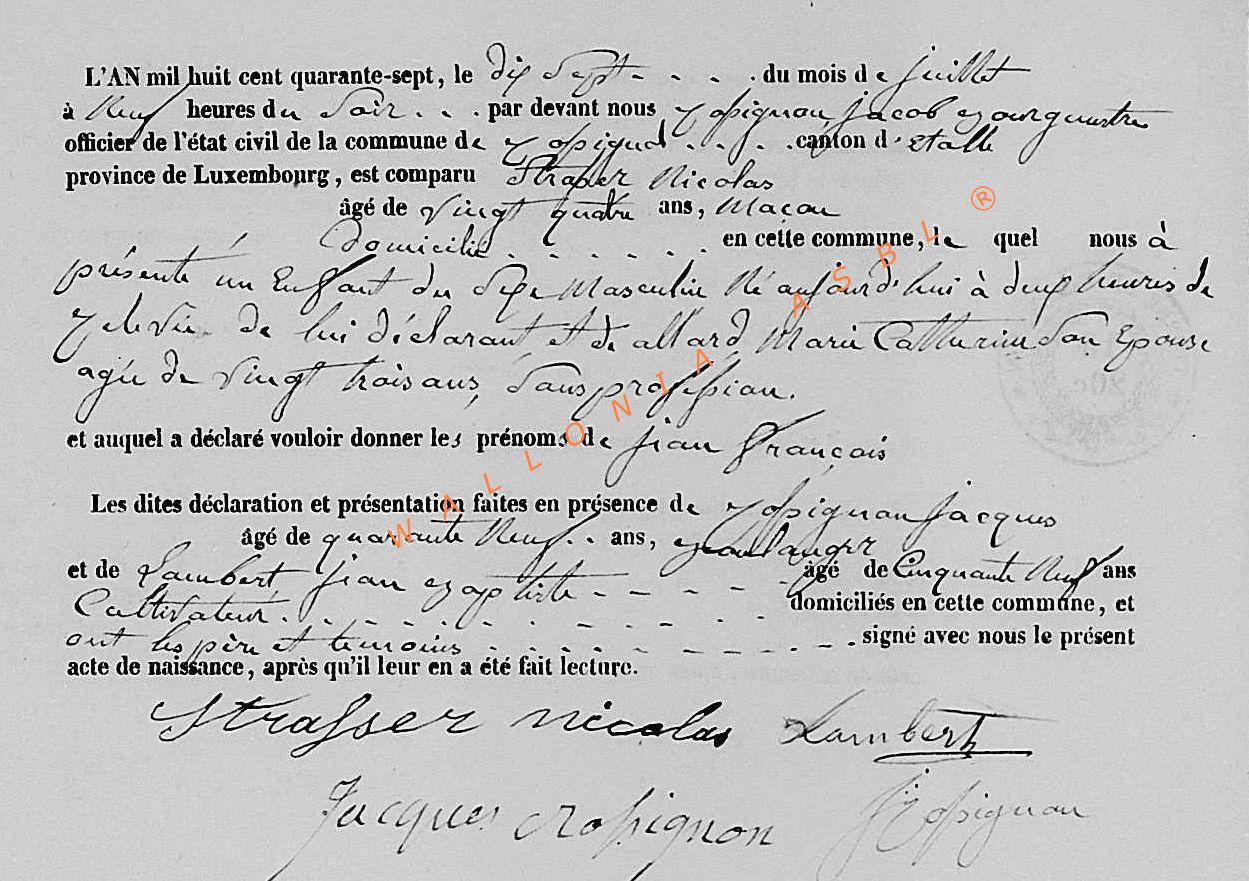 L'AN mil huit cent quarante-sept, le dix Sept - - - . du mois de juillet
à Neuf heures du Soir . . . par devant nous Rossignon jacob Bourguestre
officier de l'état civil de la commune de . . . canton d'Etalle
province de Luxembourg, est comparu Strasser Nicolas
âgé de vingt quatre ans, Macon
Domicilié . . . . . . en cette commune, le quel nous à
présenté un Enfant du Sexe Masculin Né aujourd'hui à deux heures de
de lui déclarant et de allard, Marie Catherine Son Epouse
agée de vingt trois ans, Sans profession.
et auquel a déclaré vouloir donner les prénoms de jean François
Les dites déclaration et présentation faites en présence de Rossignon jacques
âgé de quarante Neuf . . ans, Boulanger
et de Lambert jean Baptiste - - - - - âgé de Cinquante Neuf ans
Cultivateur . . . . . . . . . . domiciliés en cette commune, et
ont les père et temoins . . . . . . . . . . signé avec nous le présent
acte de naissance, après qu'il leur en a été fait lecture.
Strasser Nicolas Lambert
Jacques Rossignon J Rossignon
WALLONIA ASBL ®